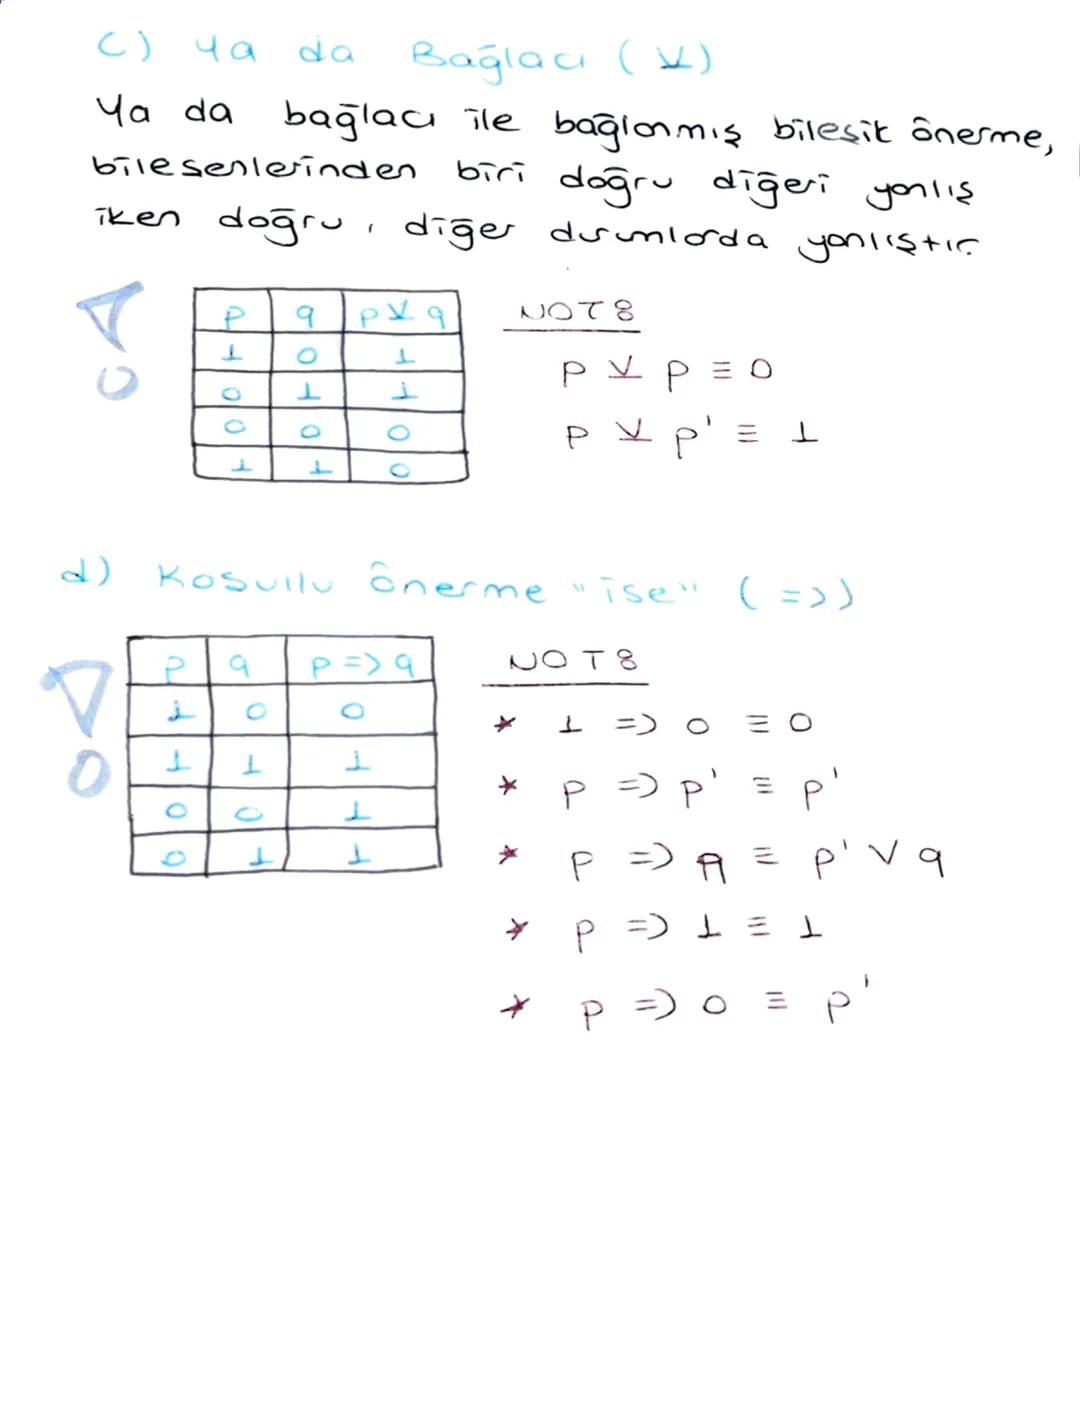 c) Ya da Bağlacı (⊻)
Ya da bağlacı ile bağlanmış bileşik önerme,
bileşenlerinden biri doğru diğeri yanlış
iken doğru, diğer durumlarda yanlıştır.
p q p⊻q
1 0 1
0 1 1
0 0 0
1 1 0
NOT:
p ⊻ p ≡ 0
p ⊻ p' ≡ 1
d) Kosullu önerme "ise" (=>)
p q p=>q
1 0 0
1 1 1
0 0 1
0 1 1
NOT:
* 1 => 0 ≡ 0
* p => p' ≡ p'
* p => q ≡ p' ∨ q
* p => 1 ≡ 1
* p => 0 ≡ p'